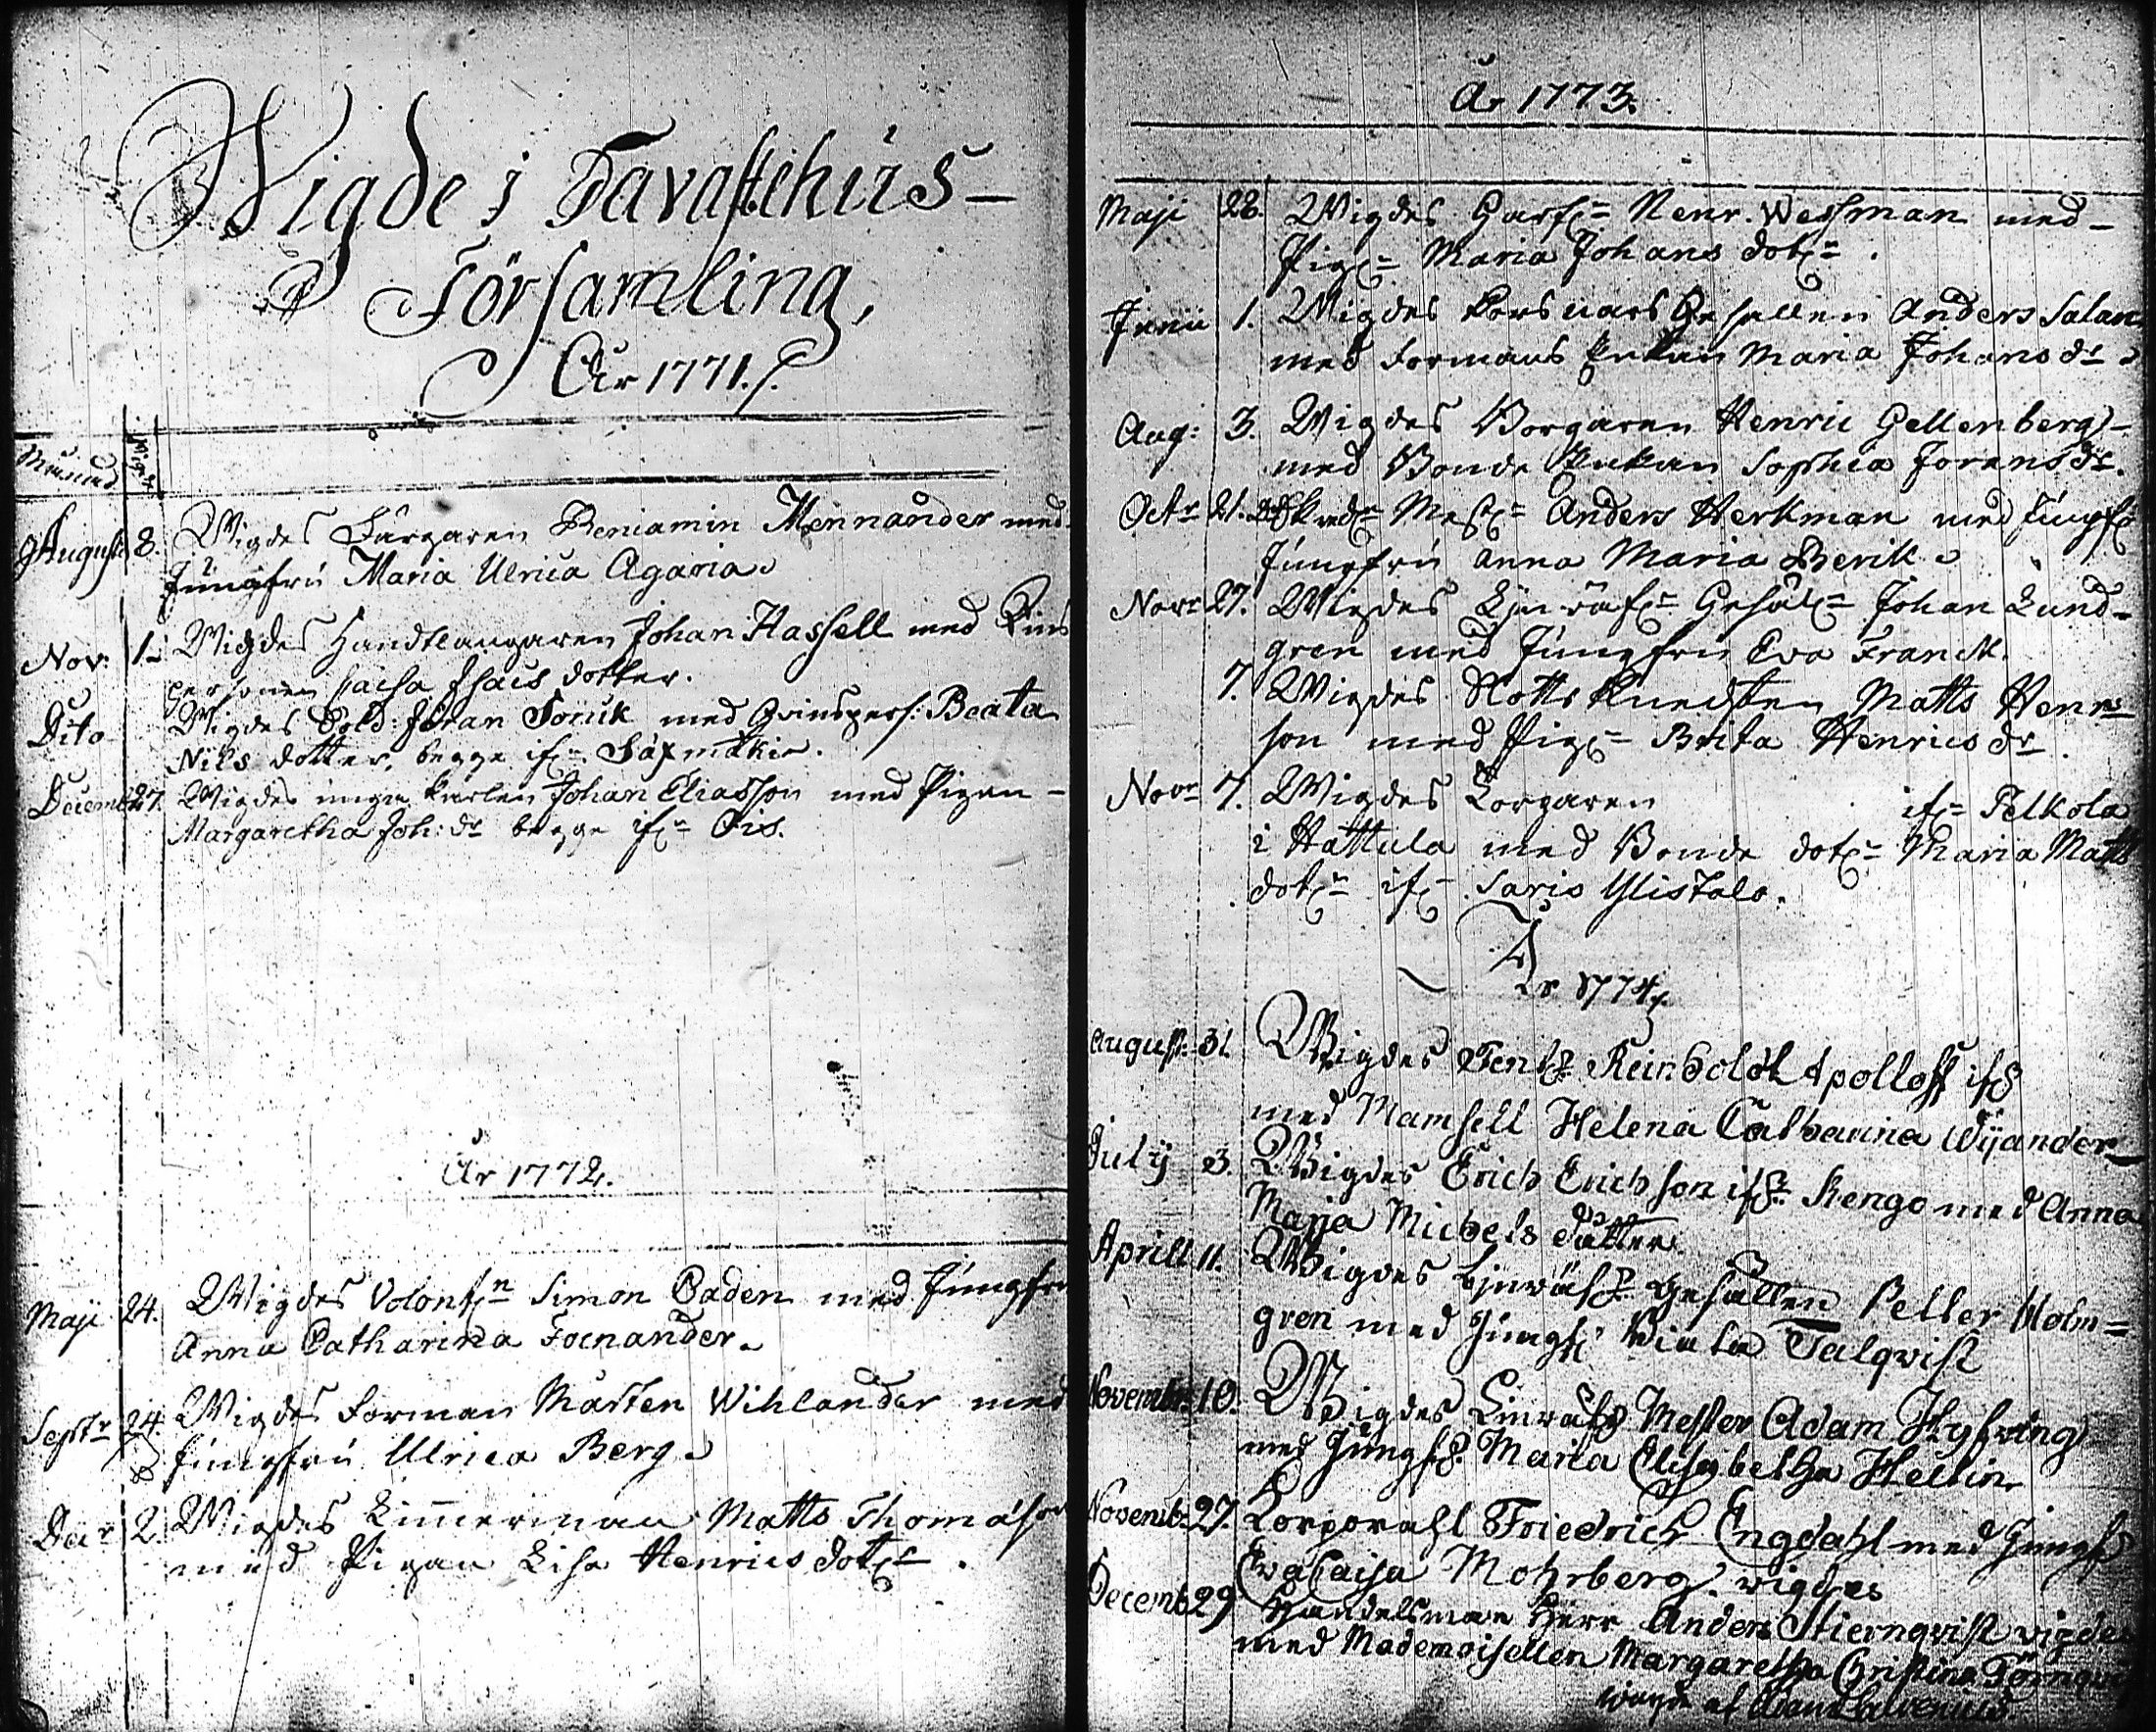 Wigde i Tavastehus-
Församling,
År 1771.
Månad
August 8. Wigdes Färgaren Beniamin Mennander med
Jungfru Maria Ulrica Agaria
Nov: 1. Wigdes Handtlangaren Johan Hassell med Quins
personen Caisa Isacs dotter.
Dito Wigdes Sold: Jöran Torsik med Qvinspers: Beata
Nils dotter, begge ifrn Saxmäki.
Decemb 27. Wigdes unga karlen Johan Eliasson med Pigan
Margaretha Joh: dr begge ifrn Ois.
År 1772.
Maji 24. Wigdes Volontn Simon Caden med Jungfru
Anna Catharina Foenander.
Septr 24. Wigdes Forman Mårten Wihlander med
Jungfru Ulrica Berg
Decr 2. Wigdes Timmerman Matts Thomason
med Pigan Lisa Henrics dotr.
År 1773.
Maji 28. Wigdes Henr. Wessman med
Pign Maria Johans dotr.
Junii 1. Wigdes Gesellen Anders Salan
med Formans Enkan Maria Johans dr
Aug: 3. Wigdes Borgaren Henric Gellenberg
med Bonde Enkan Sophia Jörens dr.
Octr 21. Mestn Anders Herkman med Jungf
Jungfru Anna Maria Berik
Novr 27. Wigdes Linväfn Gesäln Johan Lund-
gren med Jungfru Eva Franck.
7. Wigdes Slotts Knechten Matts Henr
son med Pign Brita Henrics dr.
Novr 7. Wigdes ifrn Pelkola
i Hattula med Bonde dotn Maria Matts
dotn ifr Saris Ylistalo.
År 1774.
August 31. Wigdes Reinholdt Apolloff ifr
med Mamsell Helena Catharina Wijander
July 3. Wigdes Erich Erichson ifr Rengo med Anna
Maja Michels dotter
Aprill 11. Wigdes Linwäf Gesällen Petter Holm=
gren med Jungf Biata Talqvist
Novemb: 10. Wigdes Linwäf Mester Adam Hyfving
med Jungfr Maria Elisabetha Hellin
Novemb 27. Korporahl Friedrich Engdahl med Jungf
Eva Caisa Mohrberg. wigdes
Decemb 29 Handelsman Herr Anders Stiernqvist vigdes
med Mademoisellen Margaretha Christina Törnqvi